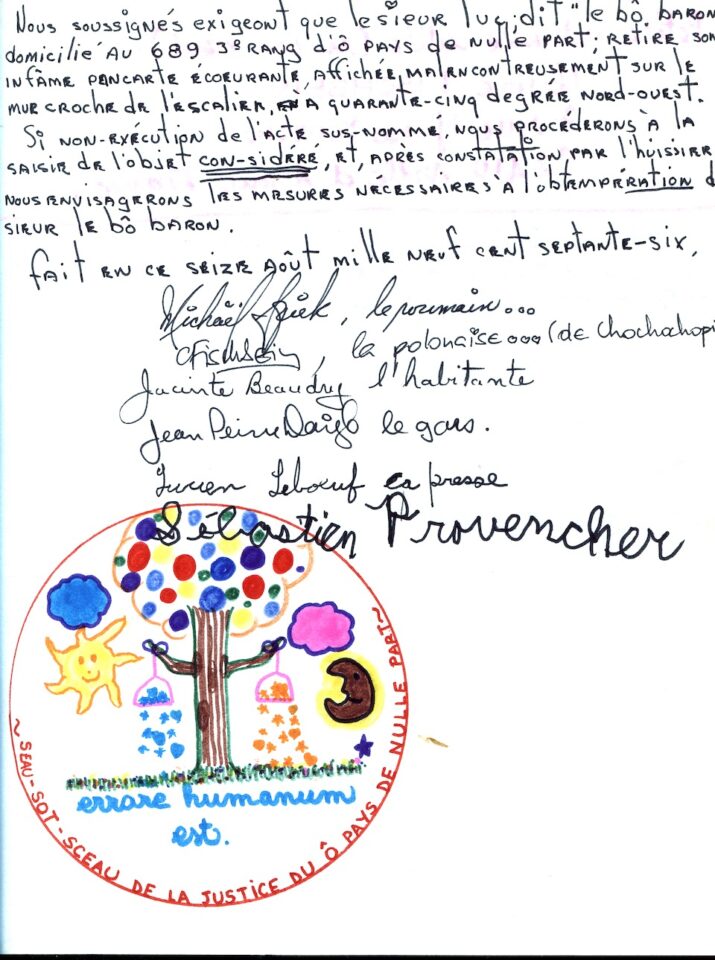 Nous soussignés exigeont que le sieur luc, dit "le bô. baron
domicilié au 689 3e rang d'ô pays de nulle part; retire son
infâme pancarte écoeurante affichée malencontreusement sur le
mur croche de l'escalier, à quarante-cinq degrée nord-ouest.
Si non-exécution de l'acte sus-nommé, nous procéderons à la
saisir de l'objet con-sidéré, et, après constatation par l'huissier
nous envisagerons les mesures nécessaires à l'obtempération d
sieur le bô baron.
fait en ce seize août mille neuf cent septante-six,
Michaël, le roumain...
la polonaise... (de Chochochopi
Jacinte Beaudry l'habitante
Jean Peirre Daigle le gars.
Lucien Leboeuf la presse
Sébastien Provencher
errare humanum
est.
~ SEAU-SOT-SCEAU DE LA JUSTICE DU Ô PAYS DE NULLE PART ~